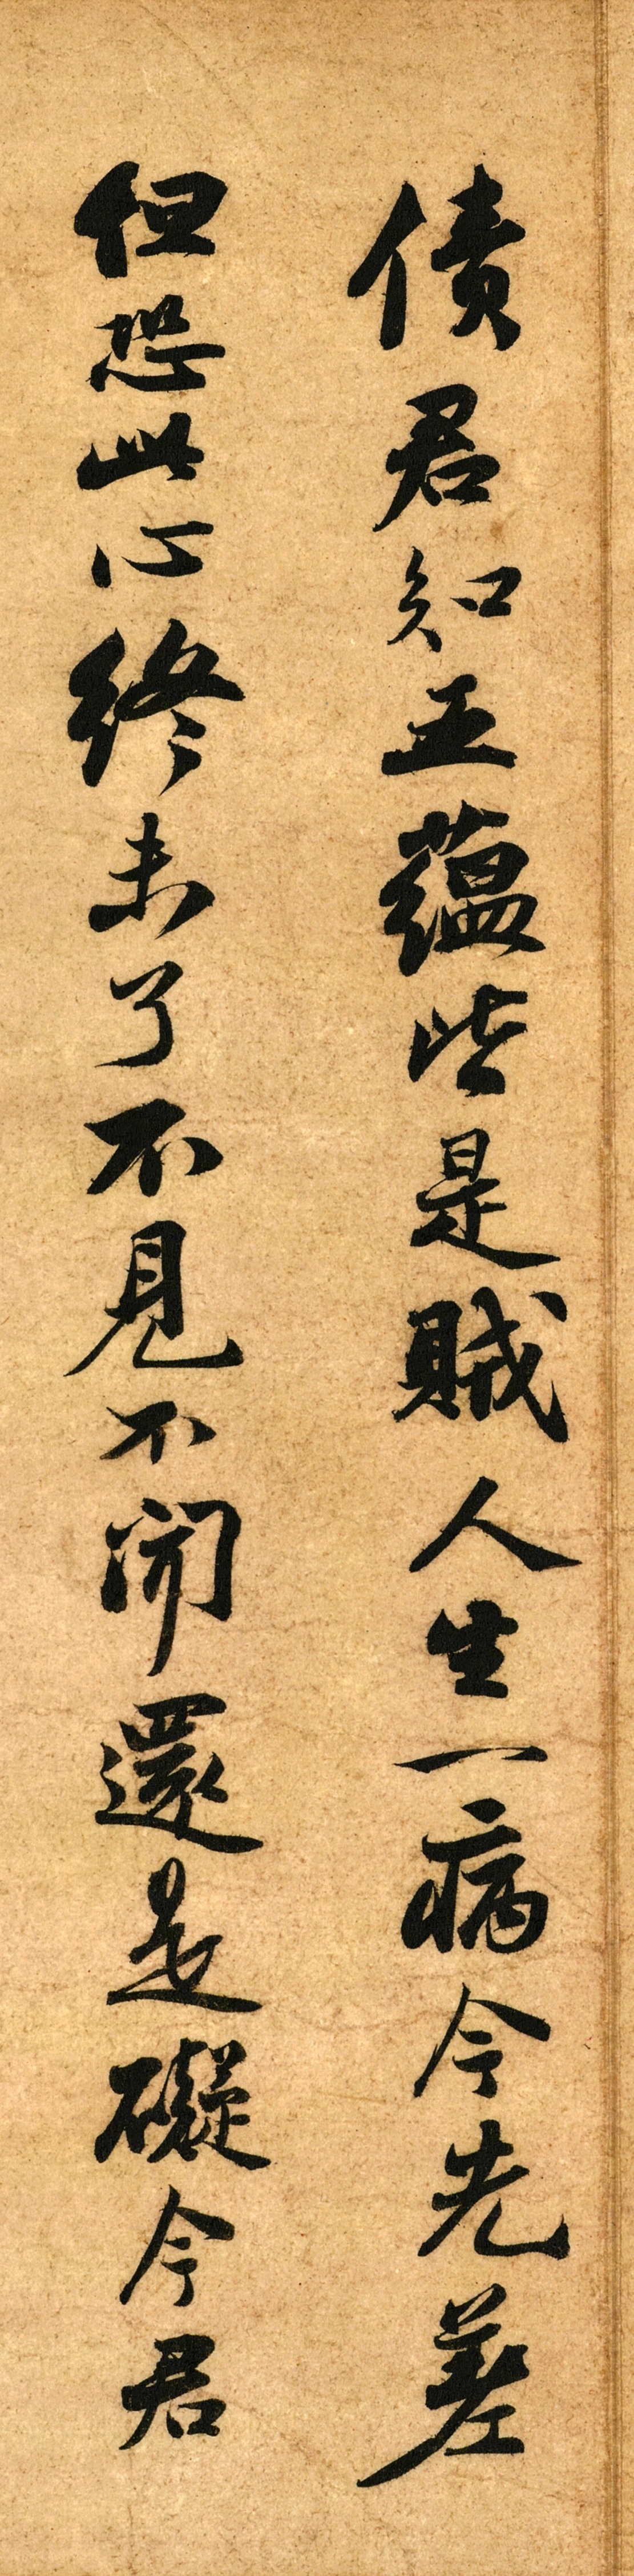 債君知五蘊皆是賊人生一病今先差
但恐此心終未了不見不聞還是礙今君